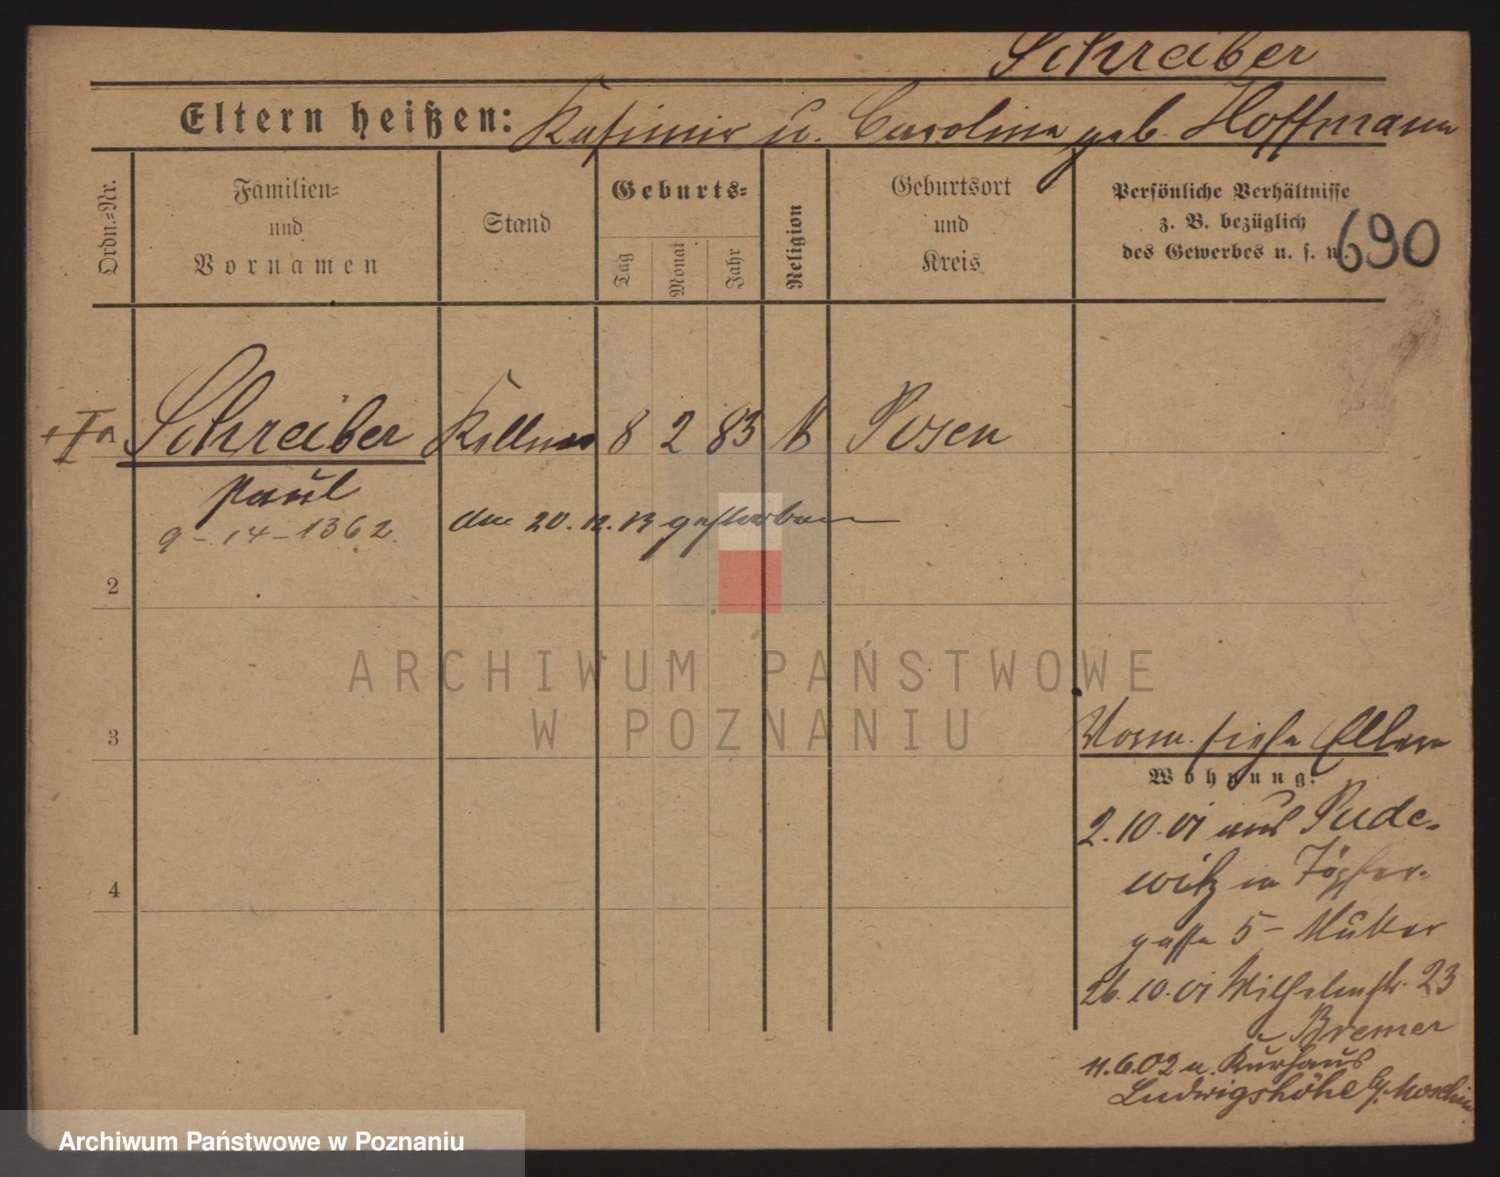 Schreiber
Eltern heißen: Kasimir u. Carolina geb. Hoffmann
Ordn.=Nr.
Familien=
und
Vornamen
Stand
Geburts=
Tag
Monat
Jahr
Religion
Geburtsort
und
Kreis
Persönliche Verhältnisse
z. B. bezüglich
des Gewerbes u. s. w.
690
Schreiber Kellner 8 2 83 Posen
Paul
9-14-1362.
den 20.12.13 gestorben
2
3
4
ARCHIWUM PAŃSTWOWE
W POZNANIU
Vorm. siehe Eltern
Wohnung:
2.10.01 aus Pude-
witz in Töpfer-
gasse 5 - Mutter
26.10.01 Wilhelmstr. 23
Bremer
11.6.02 n. Kurhaus
Ludwigshöhe b/ Moschin
Archiwum Państwowe w Poznaniu